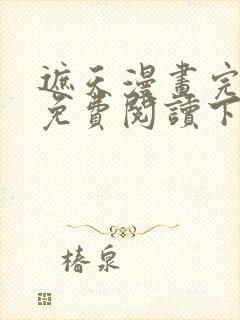 遮天漫畫完
免費閱讀下
椿泉